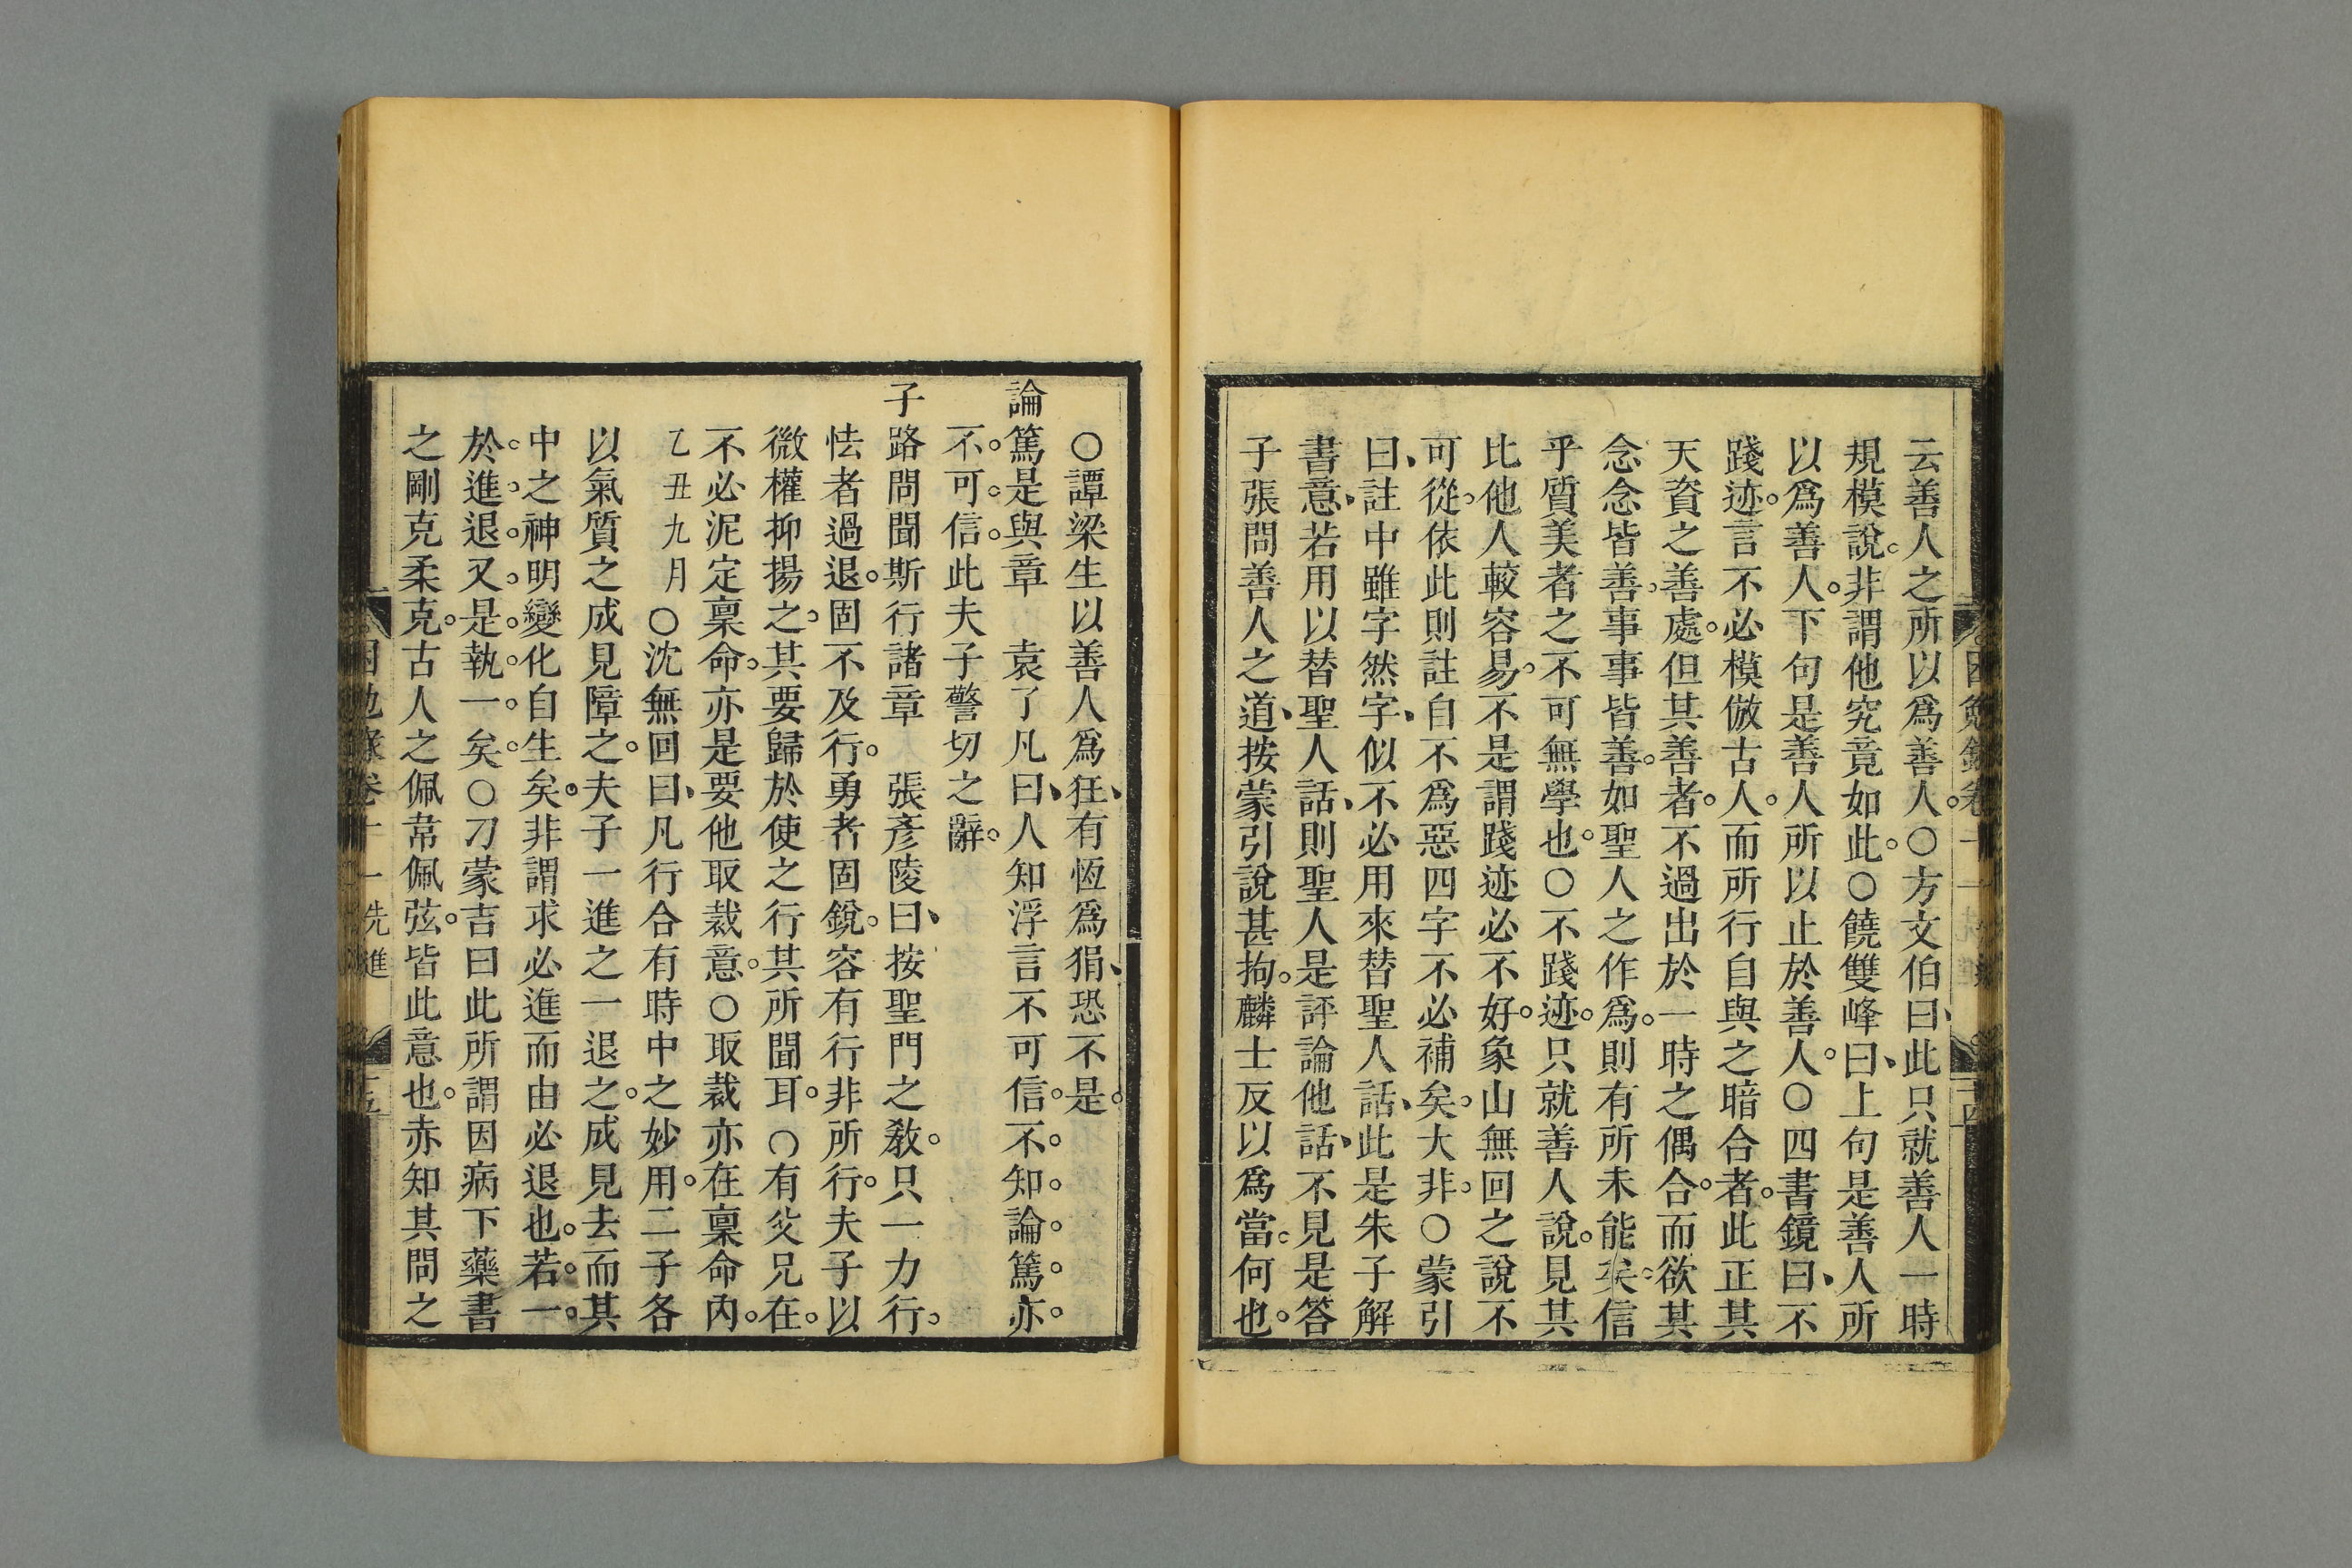 云善人之所以爲善人。○方文伯曰、此只就善人一時
規模說。非謂他究竟如此。○饒雙峰曰、上句是善人所
以爲善人。下句是善人所以止於善人。○四書鏡曰、不
踐迹。言不必模倣古人。而所行自與之暗合者。此正其
天資之善處。但其善者。不過出於一時之偶合。而欲其
念念皆善。事事皆善。如聖人之作爲。則有所未能矣。信
乎質美者之不可無學也。○不踐迹。只就善人說。見其
比他人較容易。不是謂踐迹必不好。象山無回之說不
可從。依此則註自不爲惡四字不必補矣。大非。○蒙引
曰、註中雖字然字、似不必用來替聖人話、此是朱子解
書意、若用以替聖人話、則聖人是評論他話、不見是答
子張問善人之道、按蒙引說甚拘。麟士反以爲當。何也。
○譚梁生以善人爲狂、有恆爲狷、恐不是。
論篤是與章　袁了凡曰、人知浮言不可信。不知論篤亦
不可信。此夫子警切之辭。
子路問聞斯行諸章　張彥陵曰、按聖門之教。只一力行。
怯者過退。固不及行。勇者固銳。容有行非所行。夫子以
微權抑揚之。其要歸於使之行其所聞耳。○有父兄在。
不必泥定稟命。亦是要他取裁意。○取裁亦在稟命內。
乙丑九月○沈無回曰、凡行合有時中之妙用。二子各
以氣質之成見障之。夫子一進之一退之。成見去而其
中之神明變化自生矣。非謂求必進而由必退也。若一
於進退。又是執一矣。○刁蒙吉曰此所謂因病下藥書
之剛克柔克。古人之佩韋佩弦。皆此意也。赤知其問之
先進